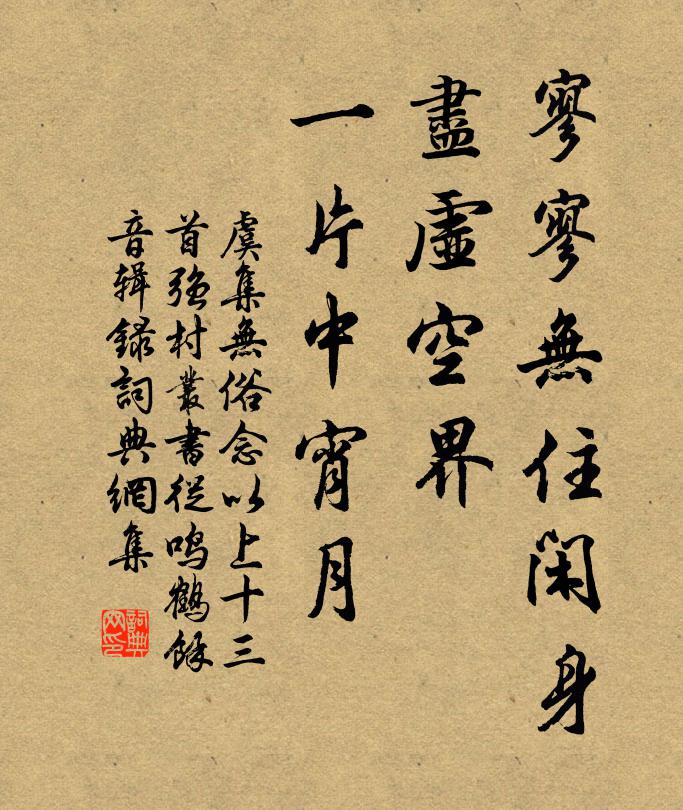 寥寥無住閑身
盡虛空界
一片中宵月
虞集無俗念以上十三
首強村叢書從鳴鶴餘
音輯録詞典網集
詞典網印